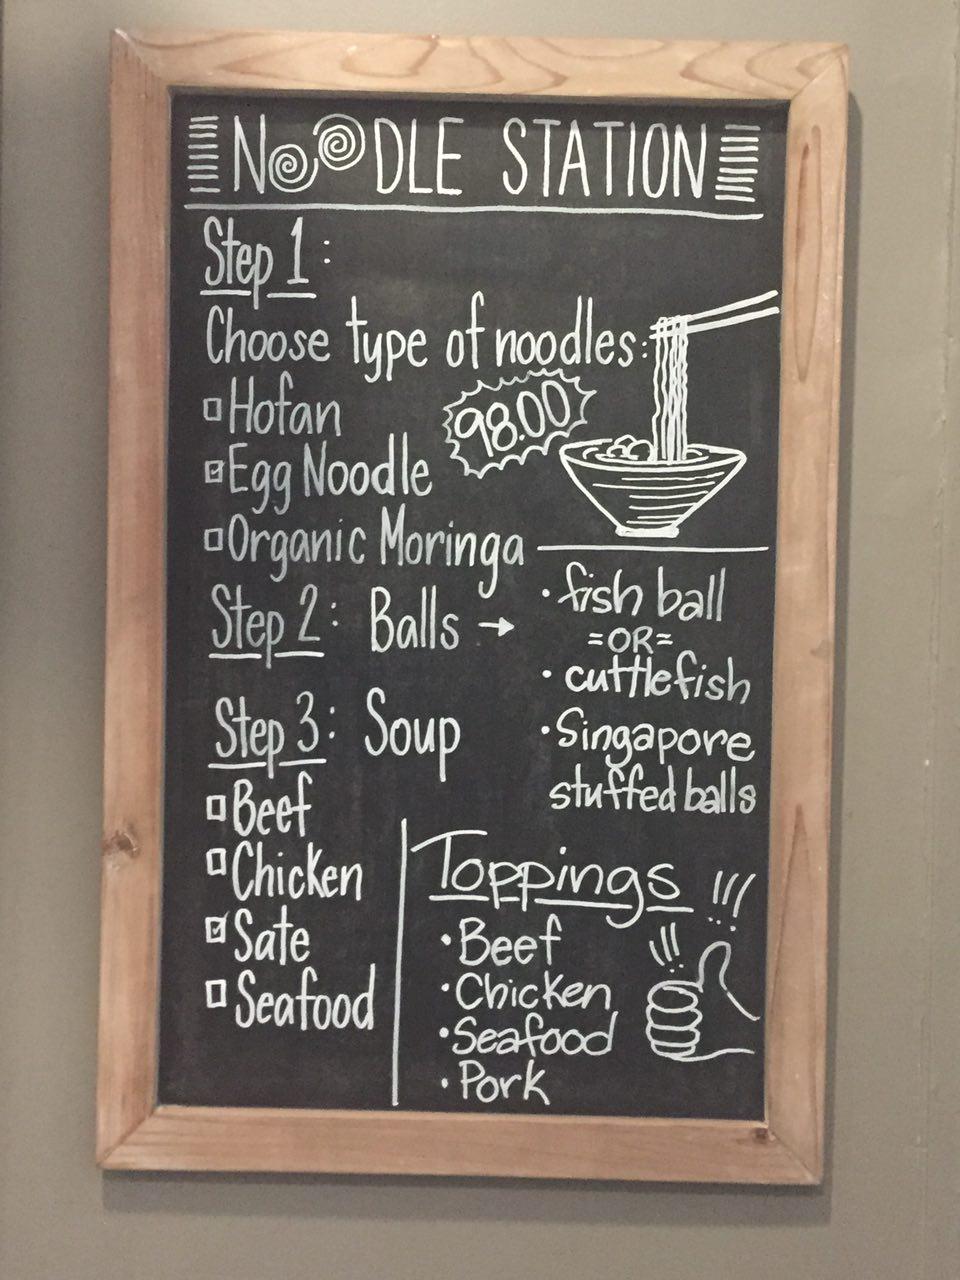 NOODLE STATION
Step 1:
Choose type of noodles:
Hofan
98.00
Egg Noodle
Organic Moringa
Step 2: Balls →
• fish ball
=OR=
• cuttlefish
• Singapore
stuffed balls
Step 3: Soup
Beef
Chicken
Sate
Seafood
Toppings
• Beef
• Chicken
• Seafood
• Pork